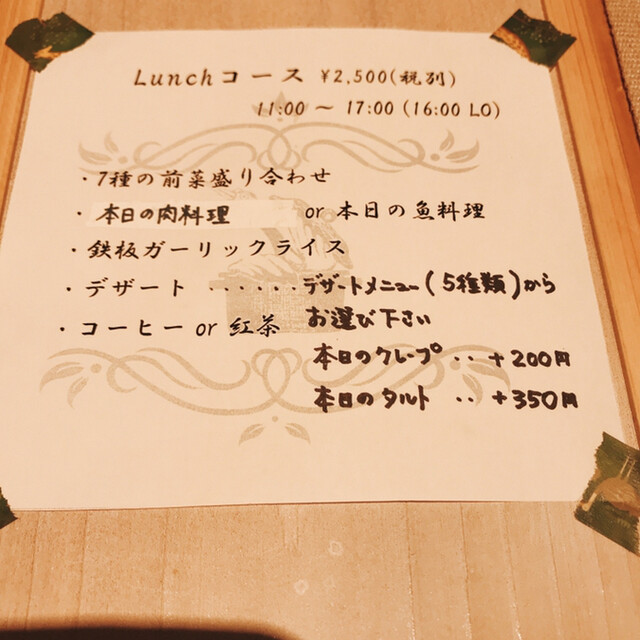 Lunchコース ¥2,500(税別)
11:00 ～ 17:00 (16:00 LO)
・7種の前菜盛り合わせ
・本日の肉料理 or 本日の魚料理
・鉄板ガーリックライス
・デザート ・・・・・デザートメニュー(5種類)から
お選び下さい
・コーヒー or 紅茶
本日のクレープ ‥ +200円
本日のタルト ‥ +350円